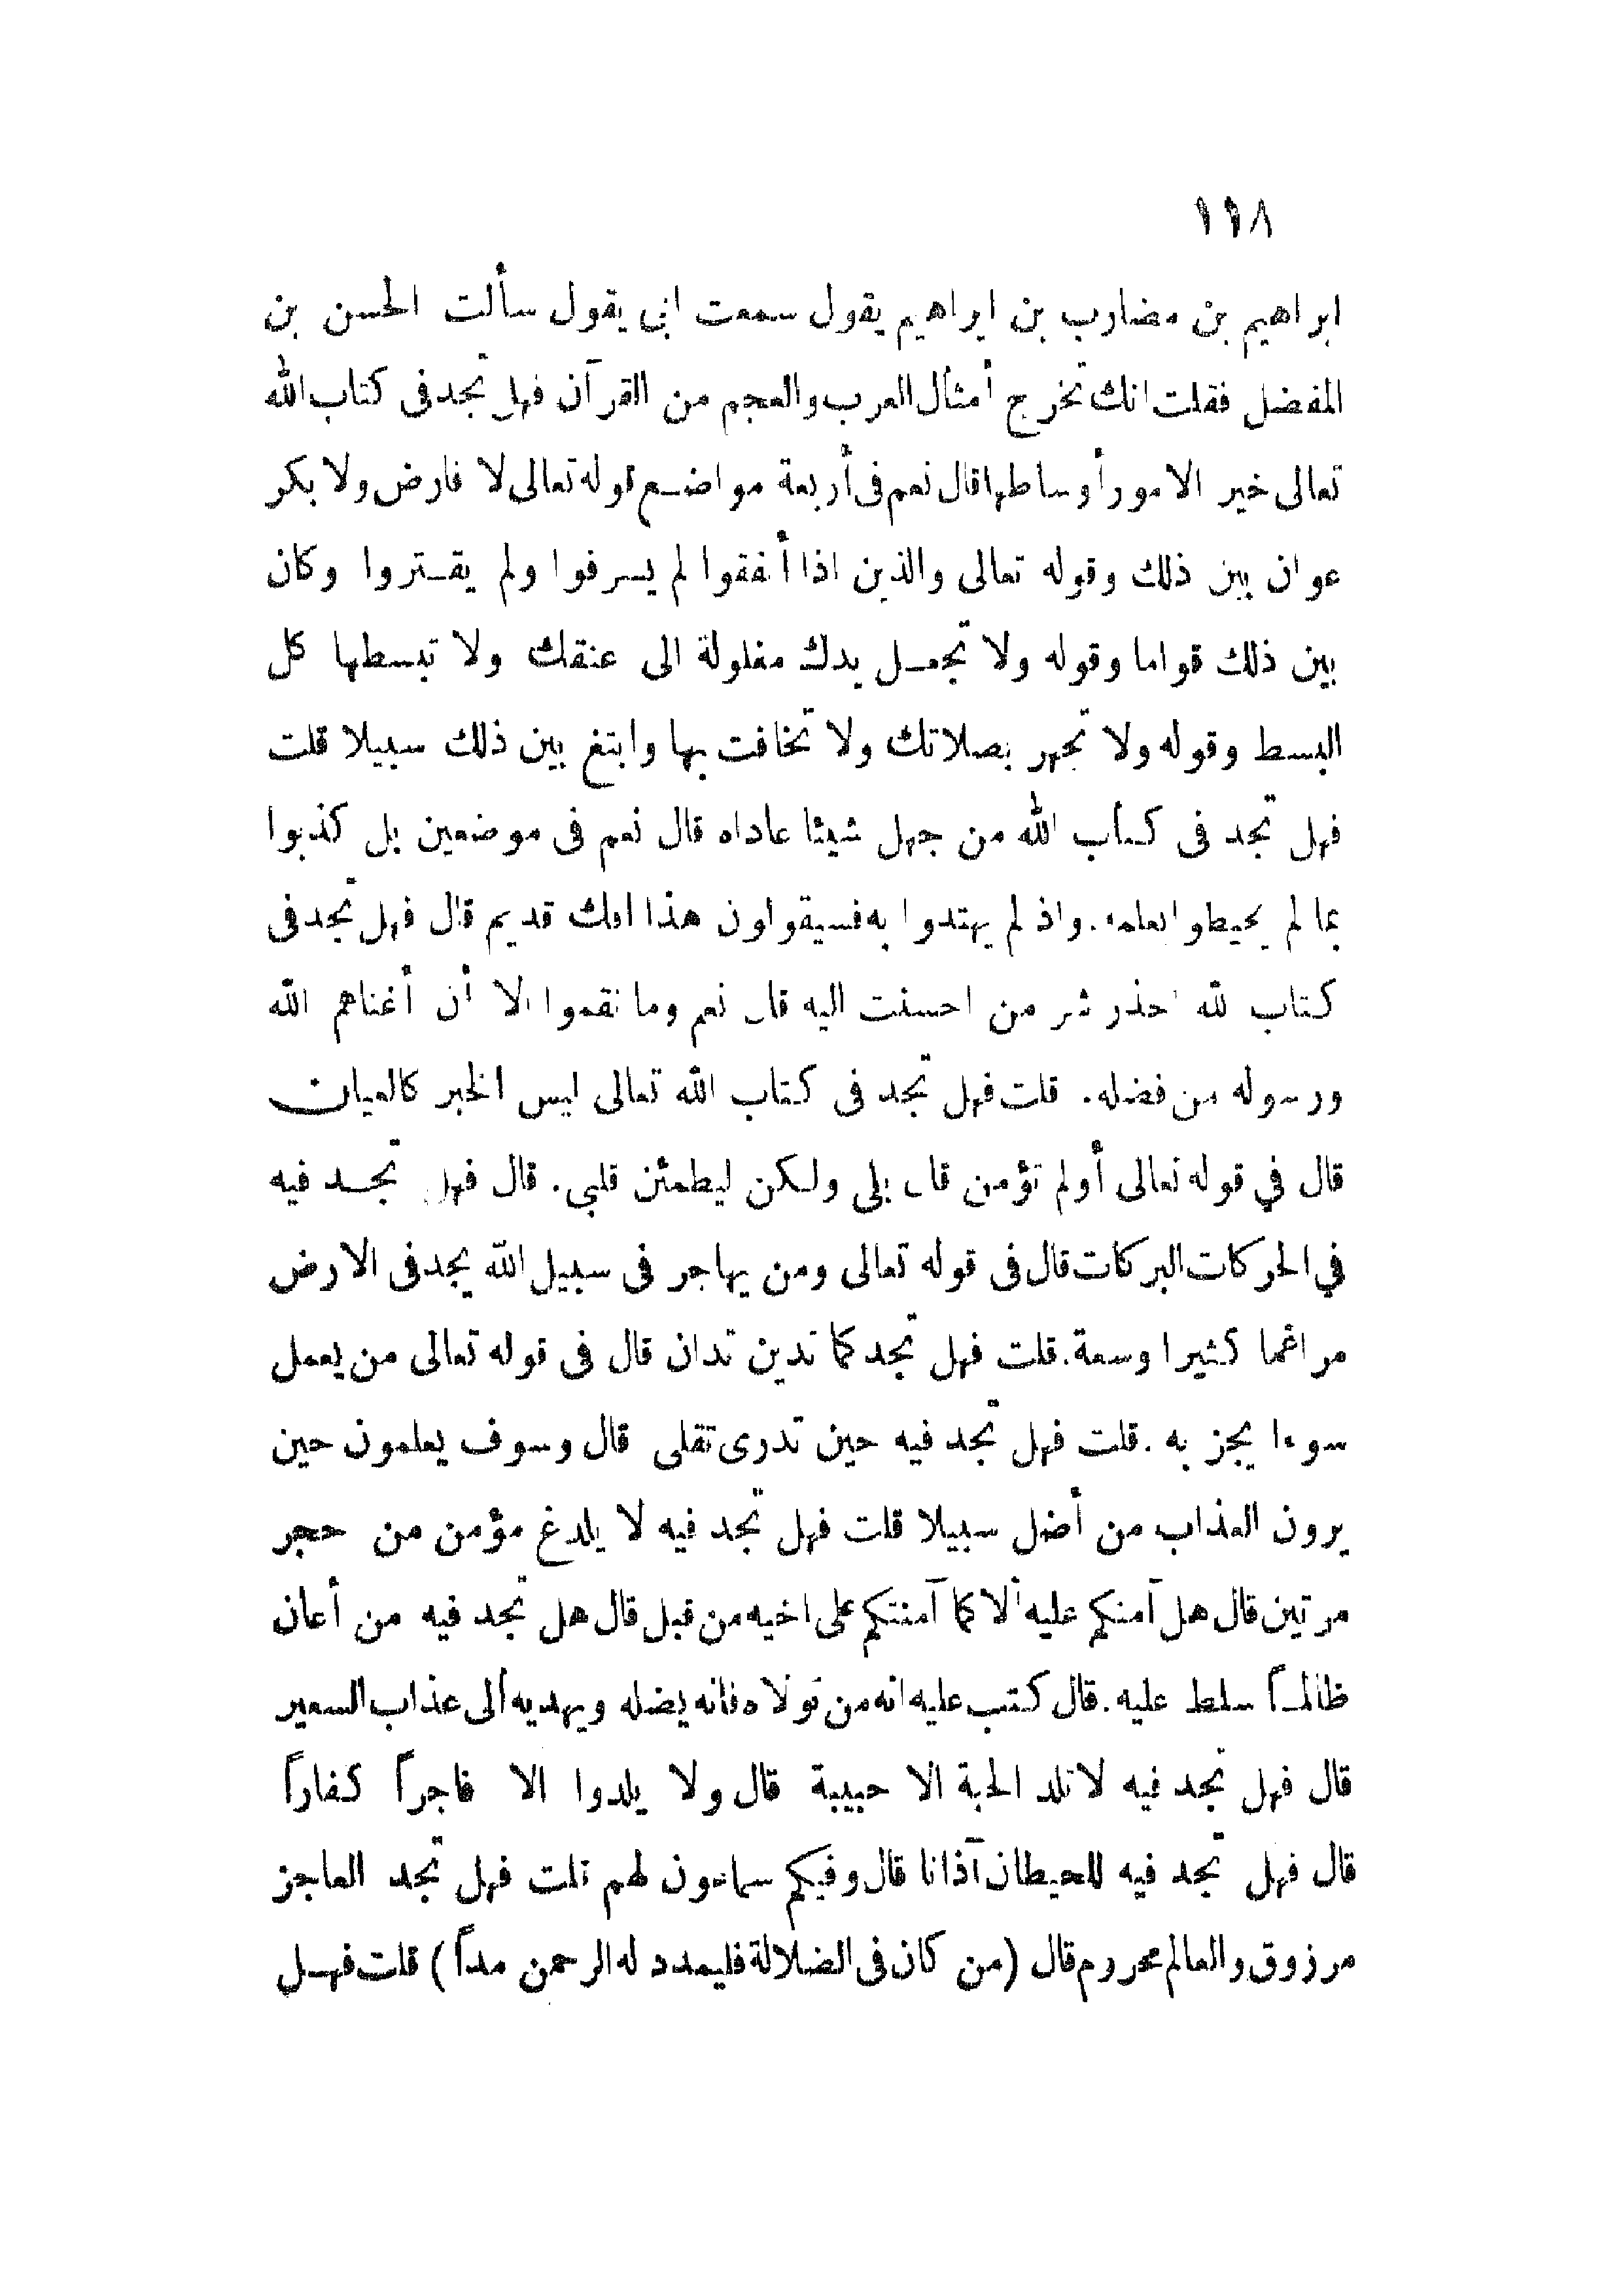 ١١٨
ابراهيم بن مضارب بن ابراهيم يقول سمعت ابى يقول سألت الحسن بن
المفضل فقلت انك تخرج أمثال العرب والعجم من القرآن فهل تجد فى كتاب الله
تعالى خير الامور أوساطها قال نعم فى أربعة مواضع قوله تعالى لا فارض ولا بكر
عوان بين ذلك وقوله تعالى والذين اذا أنفقوا لم يسرفوا ولم يقتروا وكان
بين ذلك قواما وقوله ولا تجعل يدك مغلولة الى عنقك ولا تبسطها كل
البسط وقوله ولا تجهر بصلاتك ولا تخافت بها وابتغ بين ذلك سبيلا قلت
فهل تجد فى كتاب الله من جهل شيئا عاداه قال نعم فى موضعين بل كذبوا
بما لم يحيطوا بعلمه . واذ لم يهتدوا به فسيقولون هذا افك قديم قال فهل تجد فى
كتاب لله احذر شر من احسنت اليه قال نعم وما نقموا الا أن أغناهم الله
ورسوله من فضله . قلت فهل تجد فى كتاب الله تعالى ليس الخبر كالعيان
قال في قوله تعالى أولم تؤمن قال بلى ولكن ليطمئن قلبي . قال فهل تجد فيه
في الحركات البركات قال فى قوله تعالى ومن يهاجر فى سبيل الله يجد فى الارض
مراغما كثيرا وسعة . قلت فهل تجد كما تدين تدان قال فى قوله تعالى من يعمل
سوءا يجز به . قلت فهل تجد فيه حين تدرى تقلى قال وسوف يعلمون حين
يرون العذاب من أضل سبيلا قلت فهل تجد فيه لا يلدغ مؤمن من حجر
مرتين قال هل آمنكم عليه ألا كما آمنتكم على اخيه من قبل قال هل تجد فيه من أعان
ظالمـاً سلط عليه . قال كتب عليه انه من تولاه فانه يضله ويهديه ألى عذاب السعير
قال فهل تجد فيه لا تلد الحبة الا حبيبة قال ولا يلدوا الا فاجراً كفاراً
قال فهل تجد فيه للحيطان آذانا قال وفيكم سماعون لهم قلت فهل تجد العاجز
مرزوق والعالم محروم قال ( من كان فى الضلالة فليمدد له الرحمن مداً ) قلت فهل